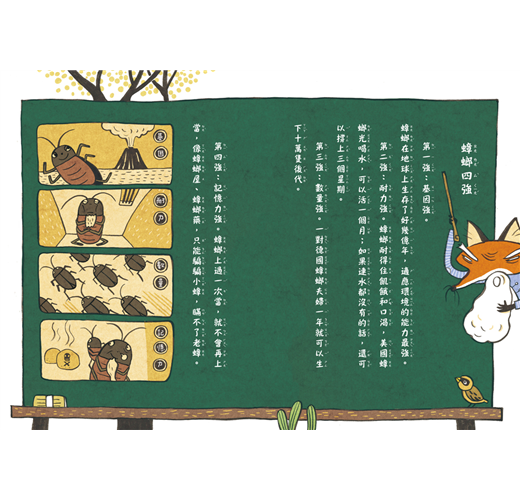 蟑螂四強
第一強:基因強。
蟑螂在地球上生存了好幾億年,適應環境的能力最強。
第二強:耐力強。蟑螂耐得住飢餓和口渴,美國蟑
螂光喝水,可以活一個月;如果連水都沒有的話,還可
以撐上三個星期。
第三強:數量強。一對德國蟑螂夫婦一年就可以生
下十萬隻後代。
第四強:記憶力強。蟑螂上過一次當,就不會再上
當,像蟑螂屋、蟑螂藥,只能騙騙小蟑,瞞不了老蟑。
基因
耐力
數量
記憶力